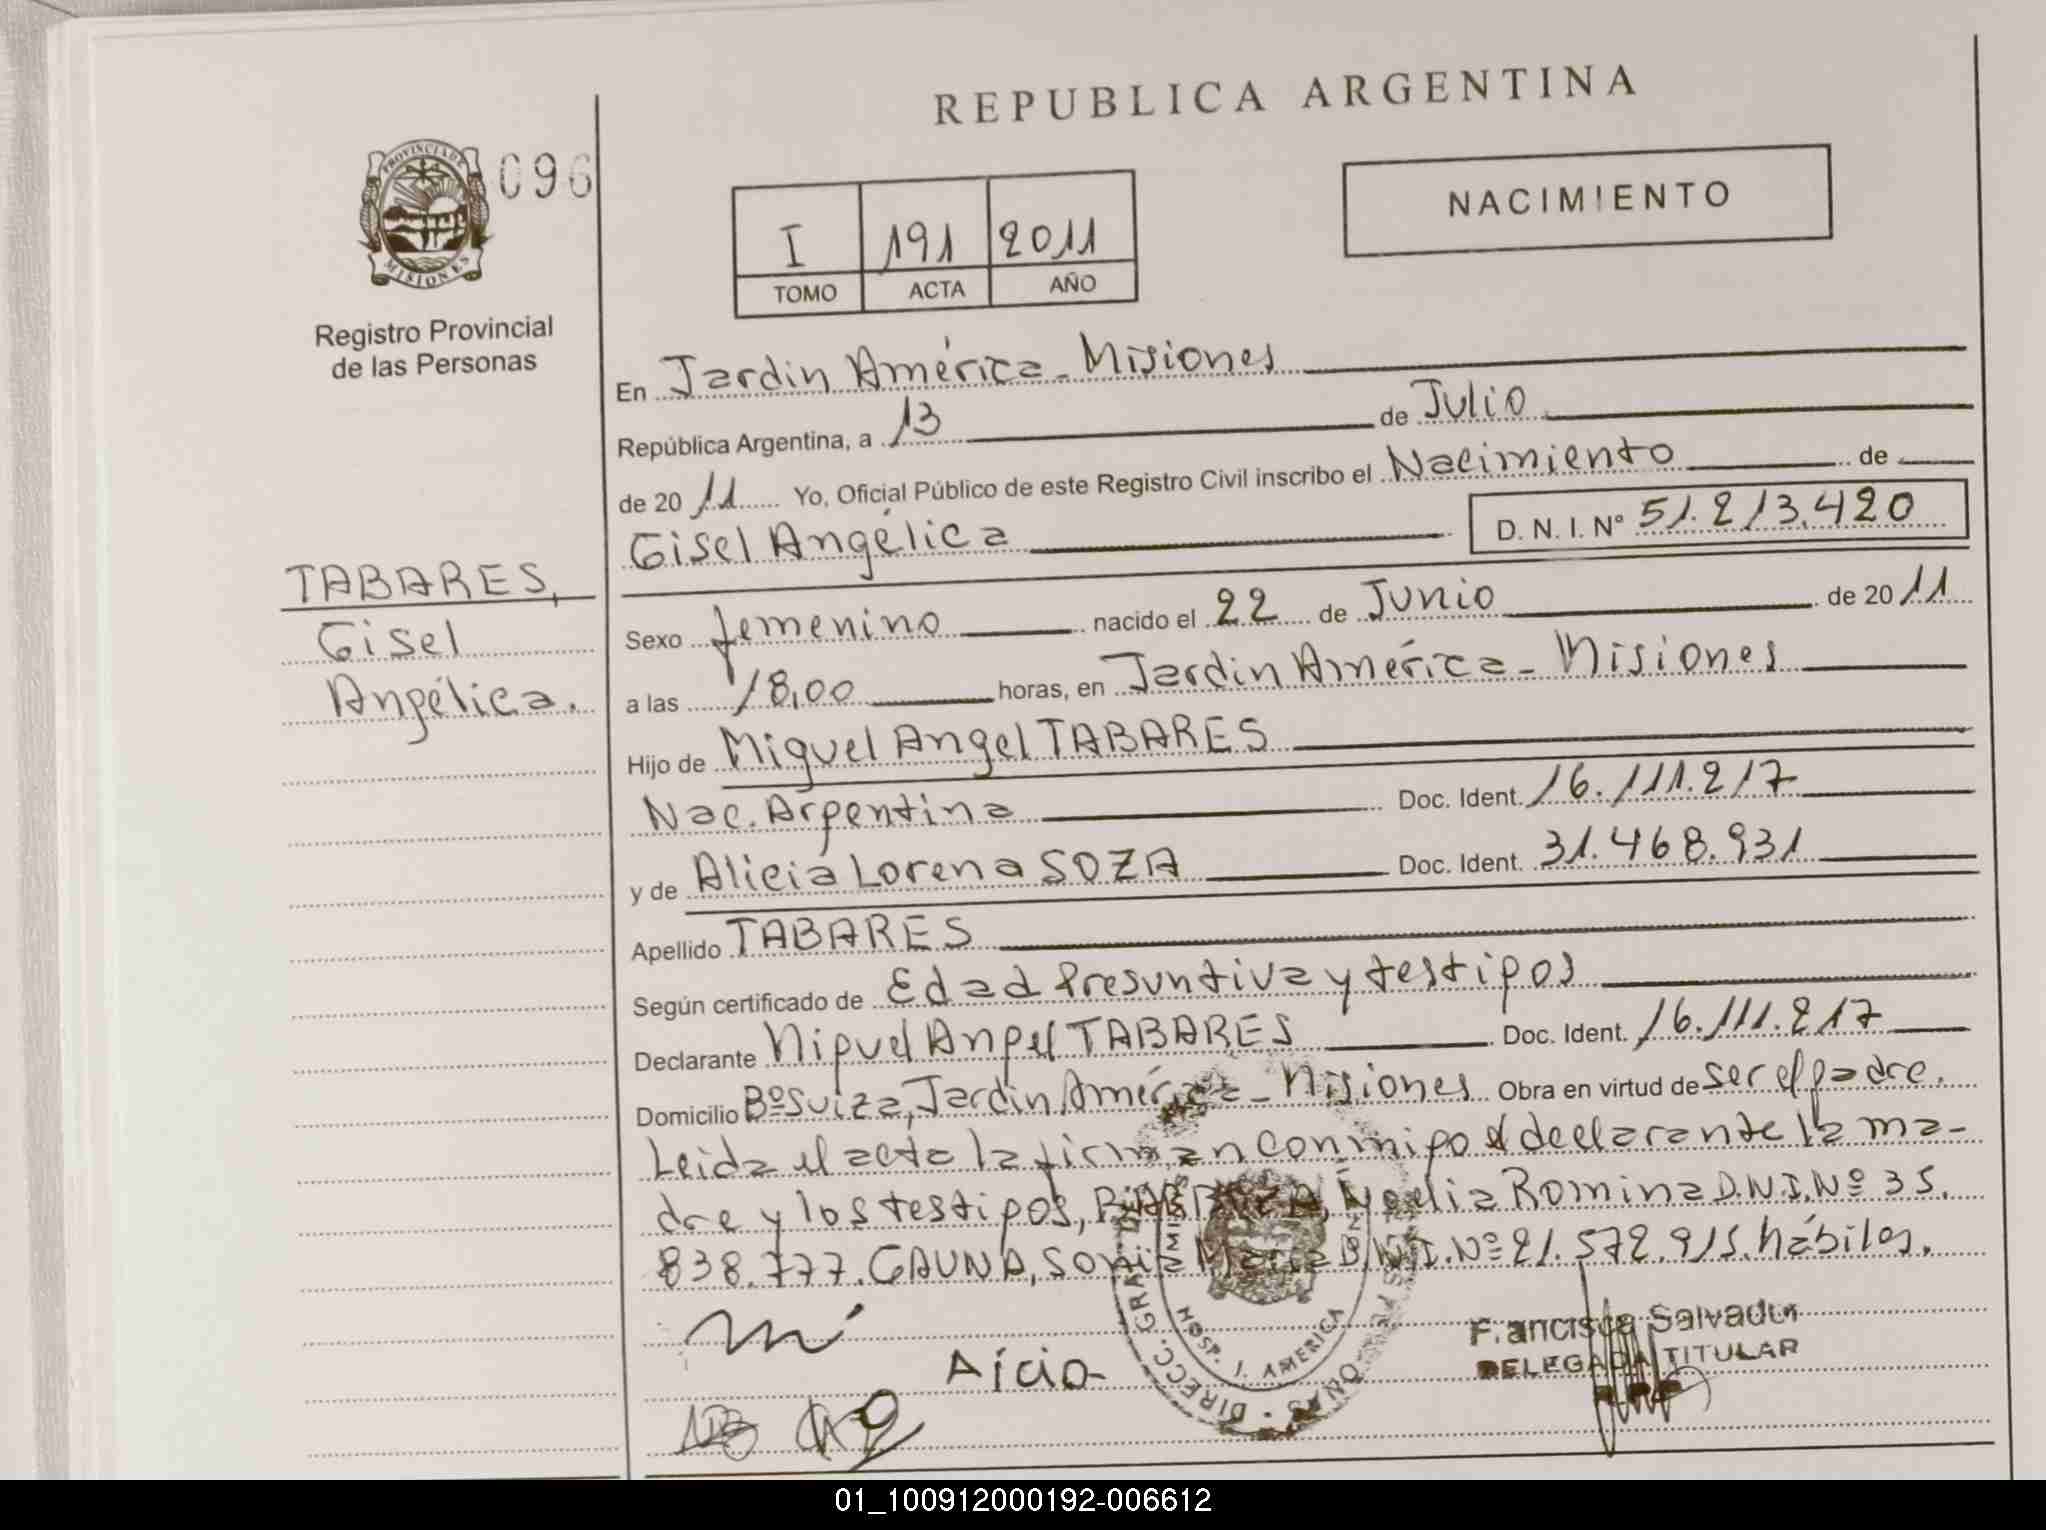 REPUBLICA ARGENTINA
PROVINCIA DE
MISIONES
096
Registro Provincial
de las Personas
NACIMIENTO
I 191 2011
TOMO ACTA AÑO
En Jardin América - Misiones
República Argentina, a 13 de Julio
de 20 11 Yo, Oficial Público de este Registro Civil inscribo el Nacimiento de
Gisel Angélica D. N. I. Nº 51.213.420
TABARES,
Gisel
Angélica.
Sexo femenino nacido el 22 de Junio de 20 11
a las 18,00 horas, en Jardin América - Misiones
Hijo de Miguel Angel TABARES
Nac. Argentina Doc. Ident. 16.111.217
y de Alicia Lorena SOZA Doc. Ident. 31.468.931
Apellido TABARES
Según certificado de Edad Presuntiva y testigos
Declarante Miguel Angel TABARES Doc. Ident. 16.111.217
Domicilio Bº Suiza, Jardin América - Misiones Obra en virtud de ser el padre.
Leida el acta la firman conmigo el declarante la ma-
dre y los testigos, Romina D.N.I. Nº 35.
838.777. GAUNA, Sonia Maria D.N.I. Nº 21.572.915. hábiles.
Aicia
DIRECC. GRAL.
HOSP. J. AMERICA
Francisca Salvador
DELEGADA TITULAR
01_100912000192-006612